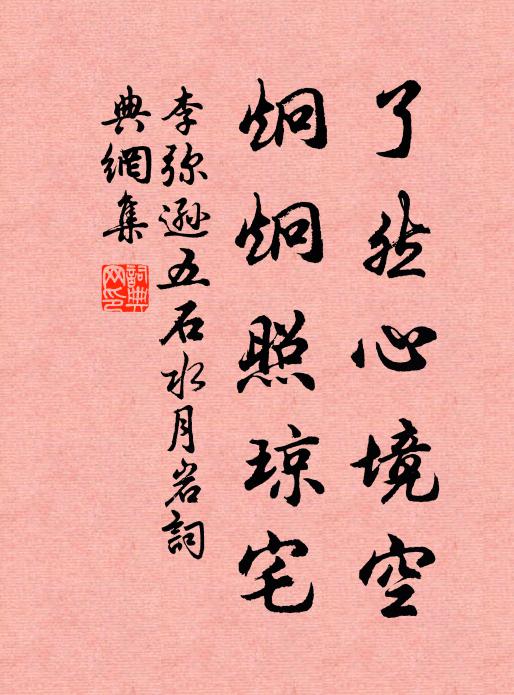 了然心境空
炯炯照琼宅
李弥逊五石水月岩詞
典網集
詞典网印